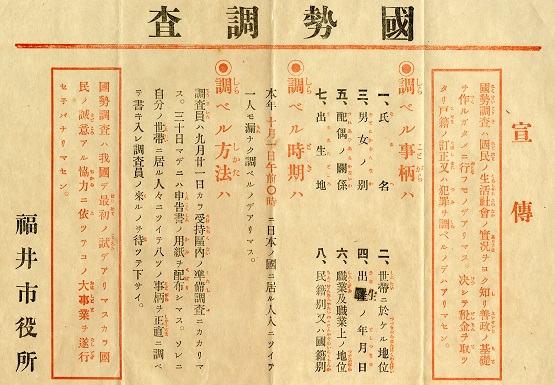 國勢調査
宣傳
國勢調査ハ國民ノ生活社會ノ實況ヲヨク知リ善政ノ基礎
ヲ作ルタメニ行フモノデアリマス、決シテ税金ヲ取ツ
タリ戸籍ノ訂正又ハ犯罪ヲ調ベルノデハアリマセン。
◉調ベル事柄ハ
一、氏名
二、世帶ニ於ケル地位
三、男女ノ別
四、出生ノ年月日
五、配偶ノ關係
六、職業及職業上ノ地位
七、出生地
八、民籍別又ハ國籍別
◉調ベル時期ハ
本年十月一日午前〇時ニ日本ノ國ニ居ル人人ニツイテ
一人モ漏ナク調ベルノデアリマス。
◉調ベル方法ハ
調査員ハ九月廿一日カラ受持區內ノ準備調査ニカカリマ
ス。三十日マデニハ申告書ノ用紙ヲ配布シマス。ソレニ
自分ノ世帶ニ居ル人々ニツイテ八ツノ事柄ヲ正直ニ調ベ
テ書キ入レ調査員ノ來ルノヲ待ツテ下サイ。
國勢調査ハ我國デ最初ノ試デアリマスカラ國
民ノ誠意アル協力ニ依ツテコノ大事業ヲ遂行
セネバナリマセン。
福井市役所